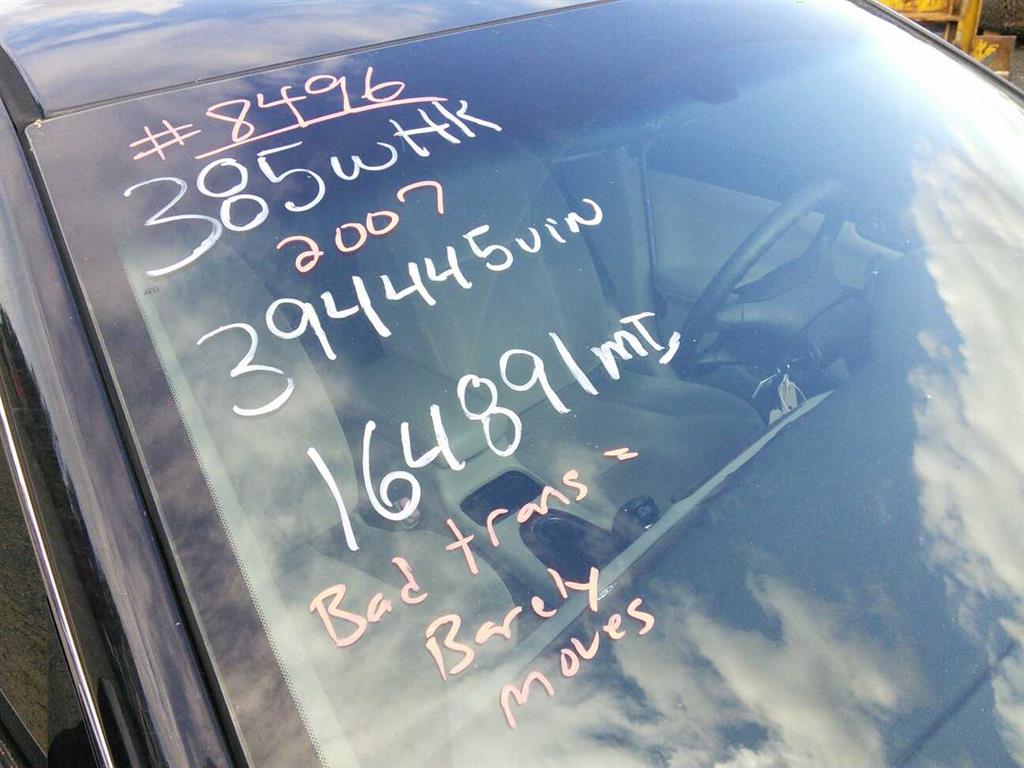 #8496
385WHK
2007
394445vin
164891 mI,
Bad trans =
Barely
moves